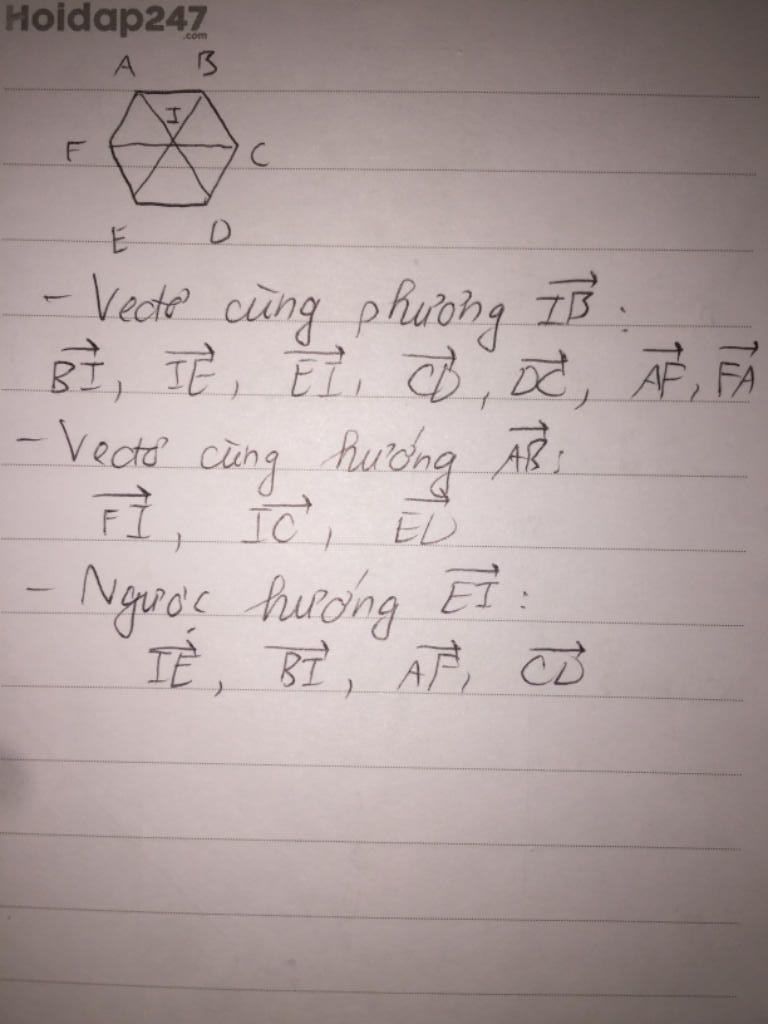 Hoidap247
.com
A B
I
F C
E D
- Vectơ cùng phương \overrightarrow{IB} :
\overrightarrow{BI}, \overrightarrow{IE}, \overrightarrow{EI}, \overrightarrow{CD}, \overrightarrow{DC}, \overrightarrow{AF}, \overrightarrow{FA}
- Vectơ cùng hướng \overrightarrow{AB}:
\overrightarrow{FI}, \overrightarrow{IC}, \overrightarrow{ED}
- Ngược hướng \overrightarrow{EI} :
\overrightarrow{IE}, \overrightarrow{BI}, \overrightarrow{AF}, \overrightarrow{CD}